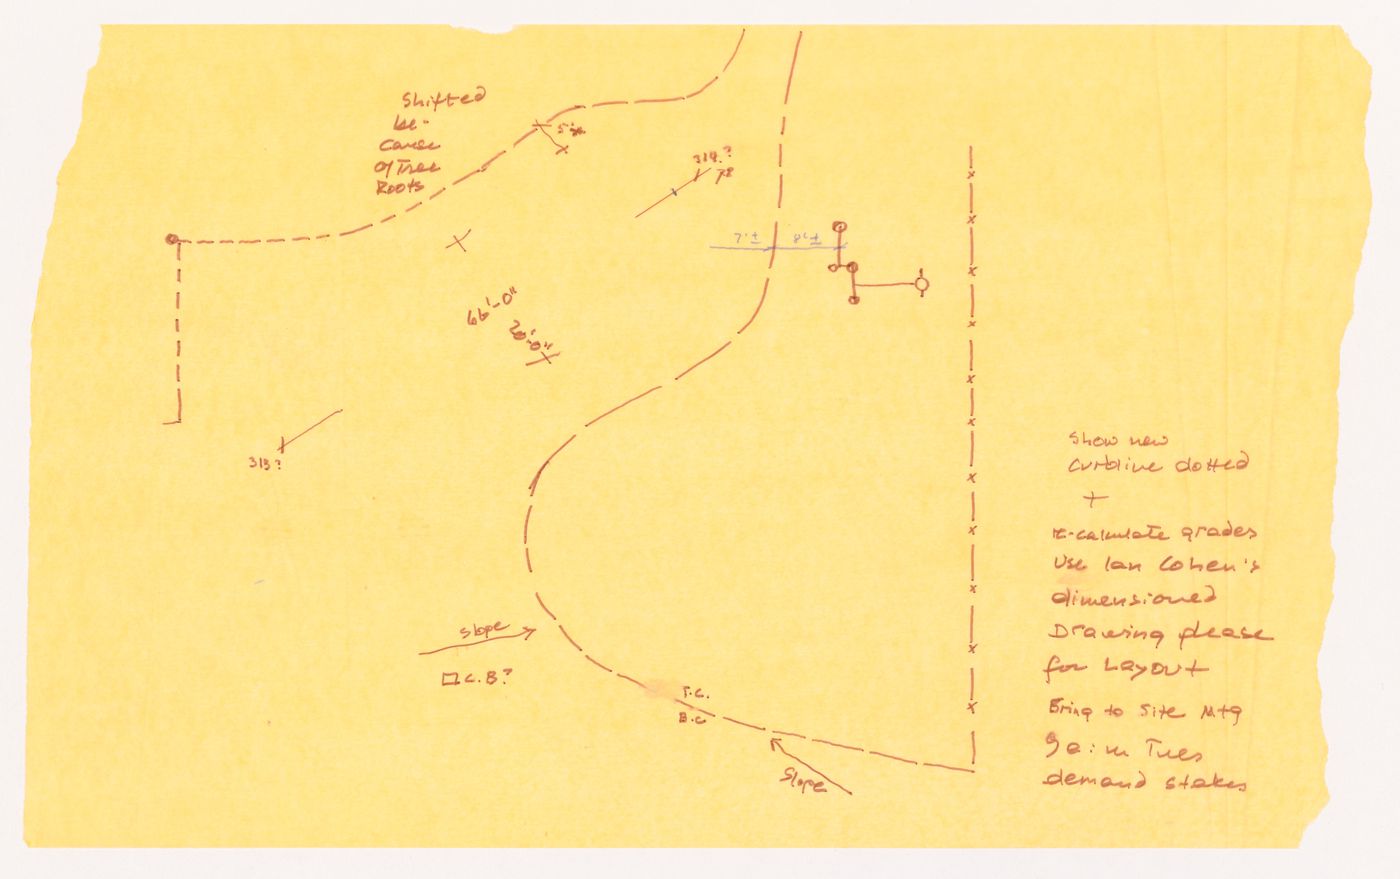 Shifted
be-
cause
of Tree
Roots
5'±
319.?
78
±.7
±.8
66'-0"
20'-0"
313?
Slope
C.B?
T.C.
B.C
Slope
Show new
curbline dotted
+
re-calculate grades
Use Ian Cohen's
dimensioned
Drawing please
for Layout
Bring to Site Mtg
9 a.m Tues
demand stakes